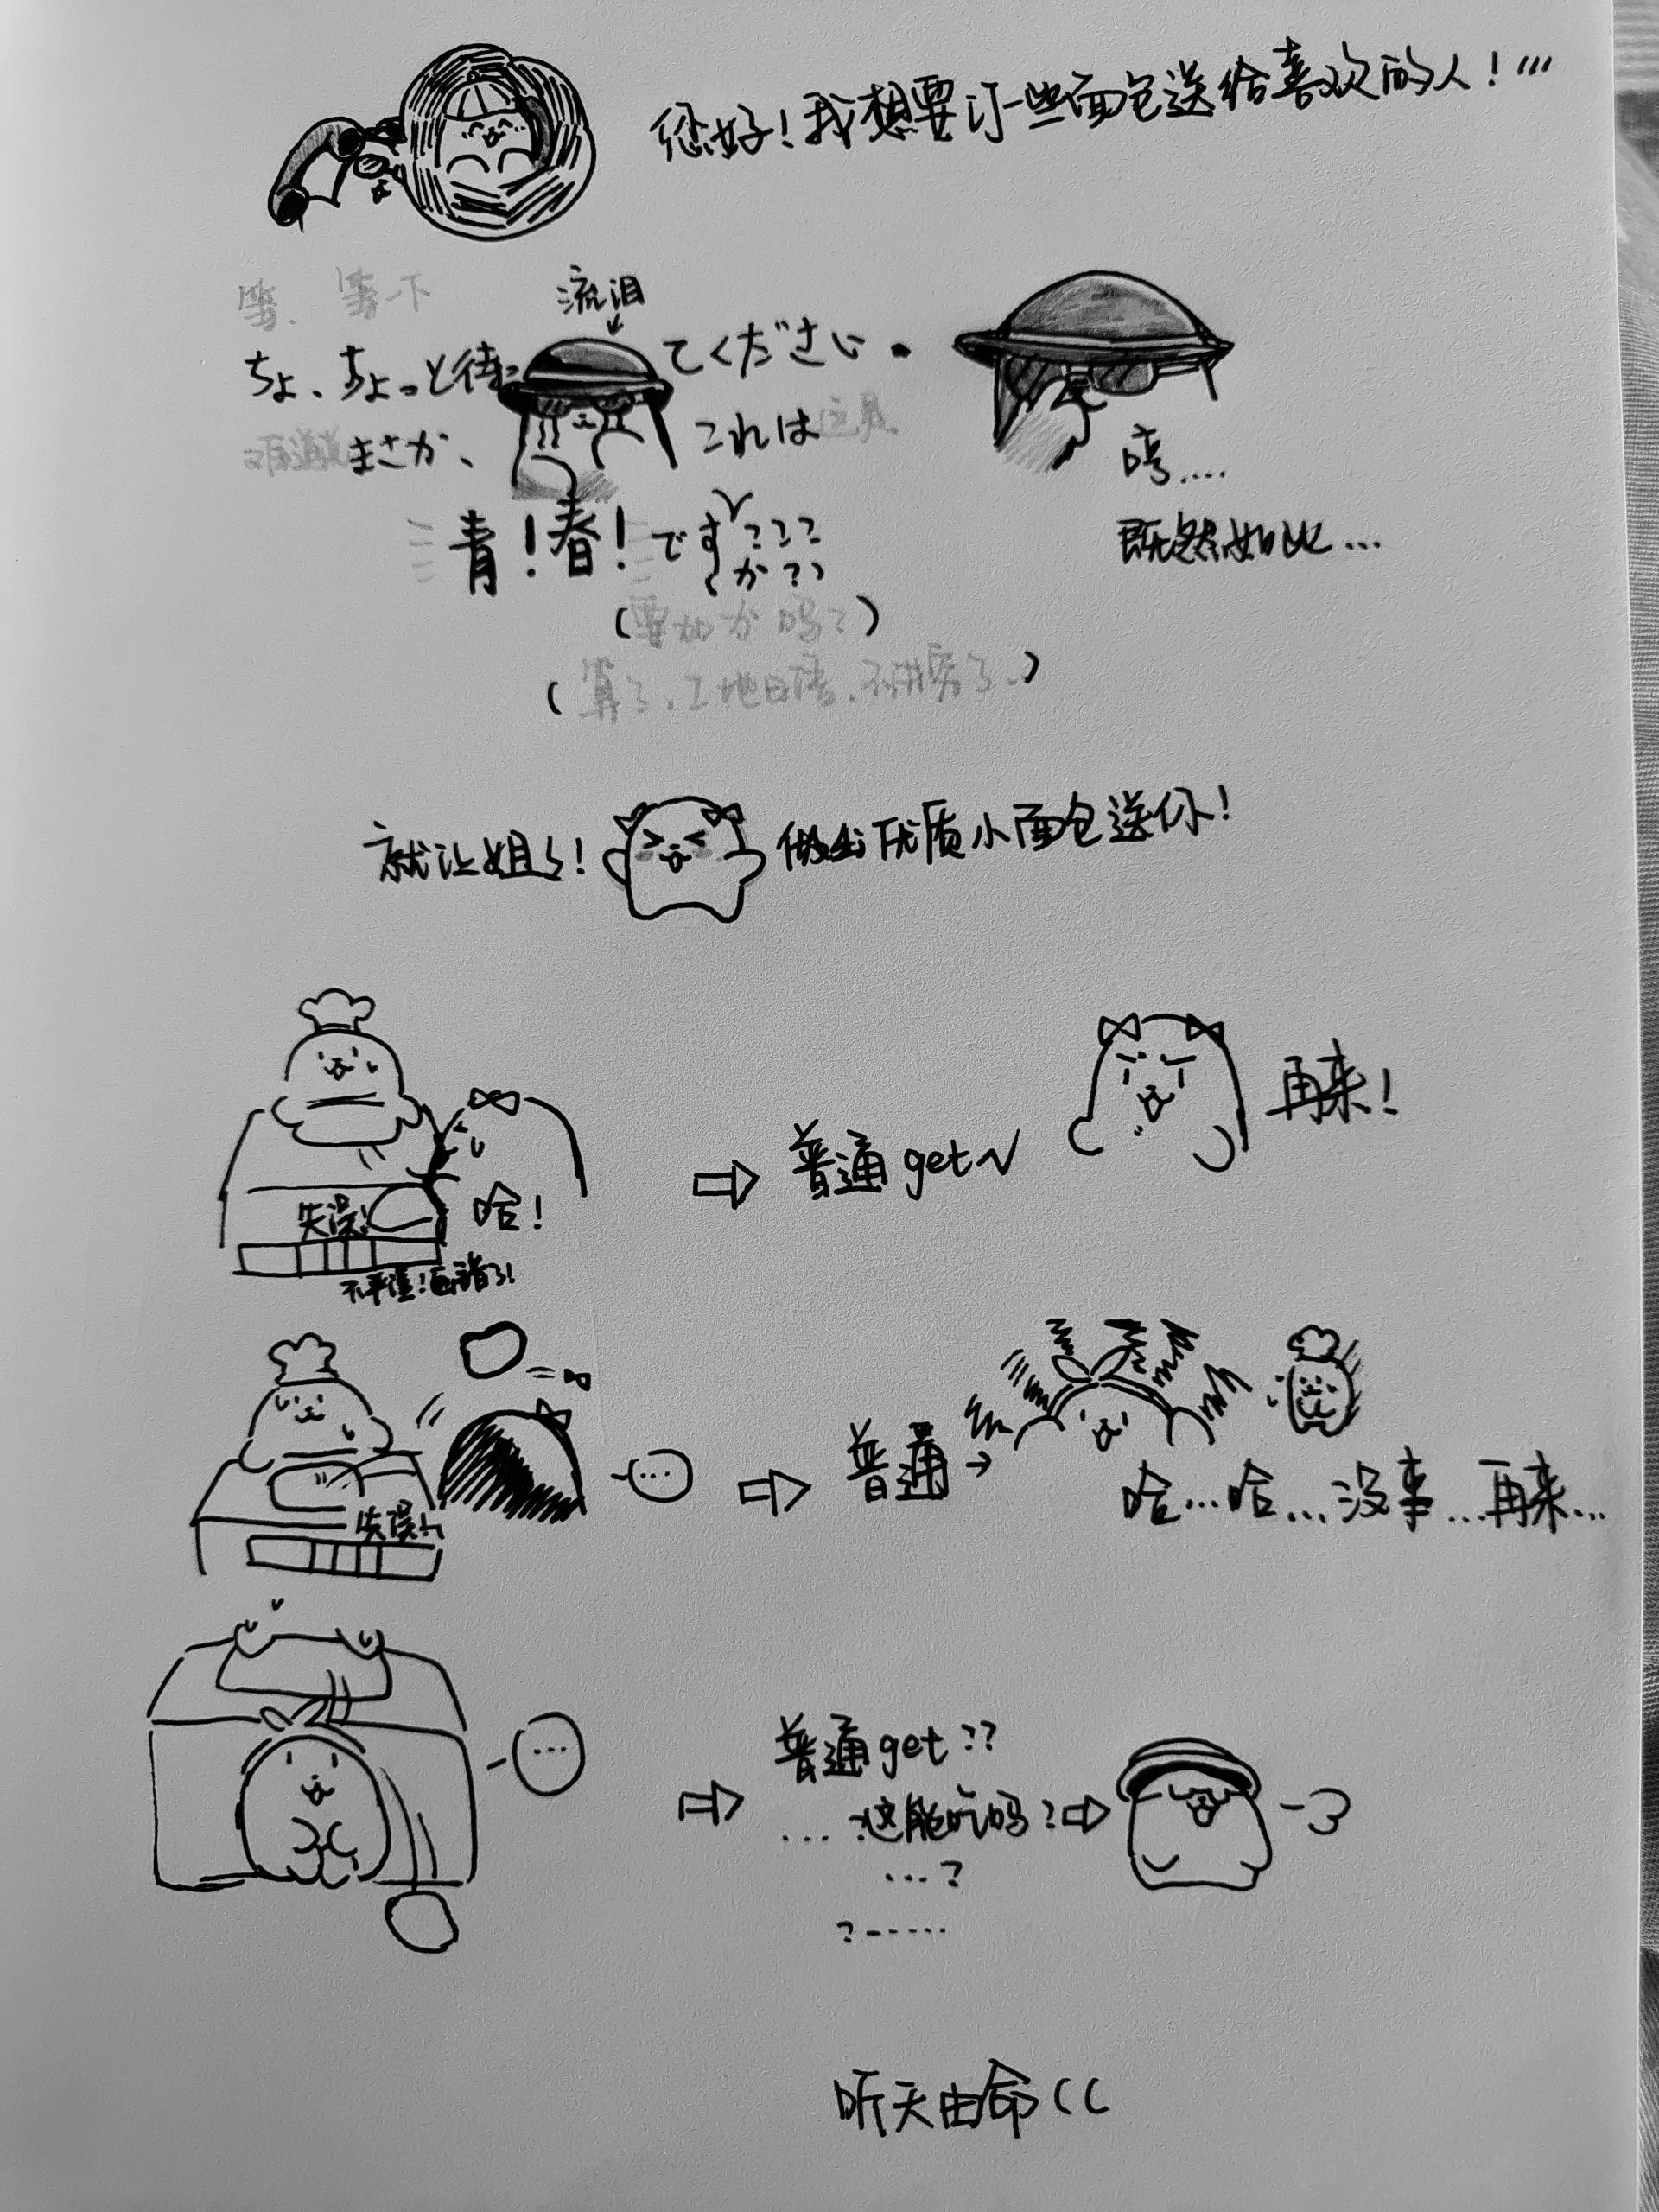 您好！我想要订一些面包送给喜欢的人！
等、等一下
流泪
ちょ、ちょっと待ってください。
难道说 まさか、これは 这是
青！春！です？？？
か？？
哼....
既然如此...
（要加か吗？）
（算了，工地日语，不讲究了。）
就让姐了！做出优质小面包送你！
失误！
哈！
普通get√
再来！
失误
...
普通
哈...哈...没事...再来...
...
普通get??
...这能吃吗？
...?
?......
听天由命((